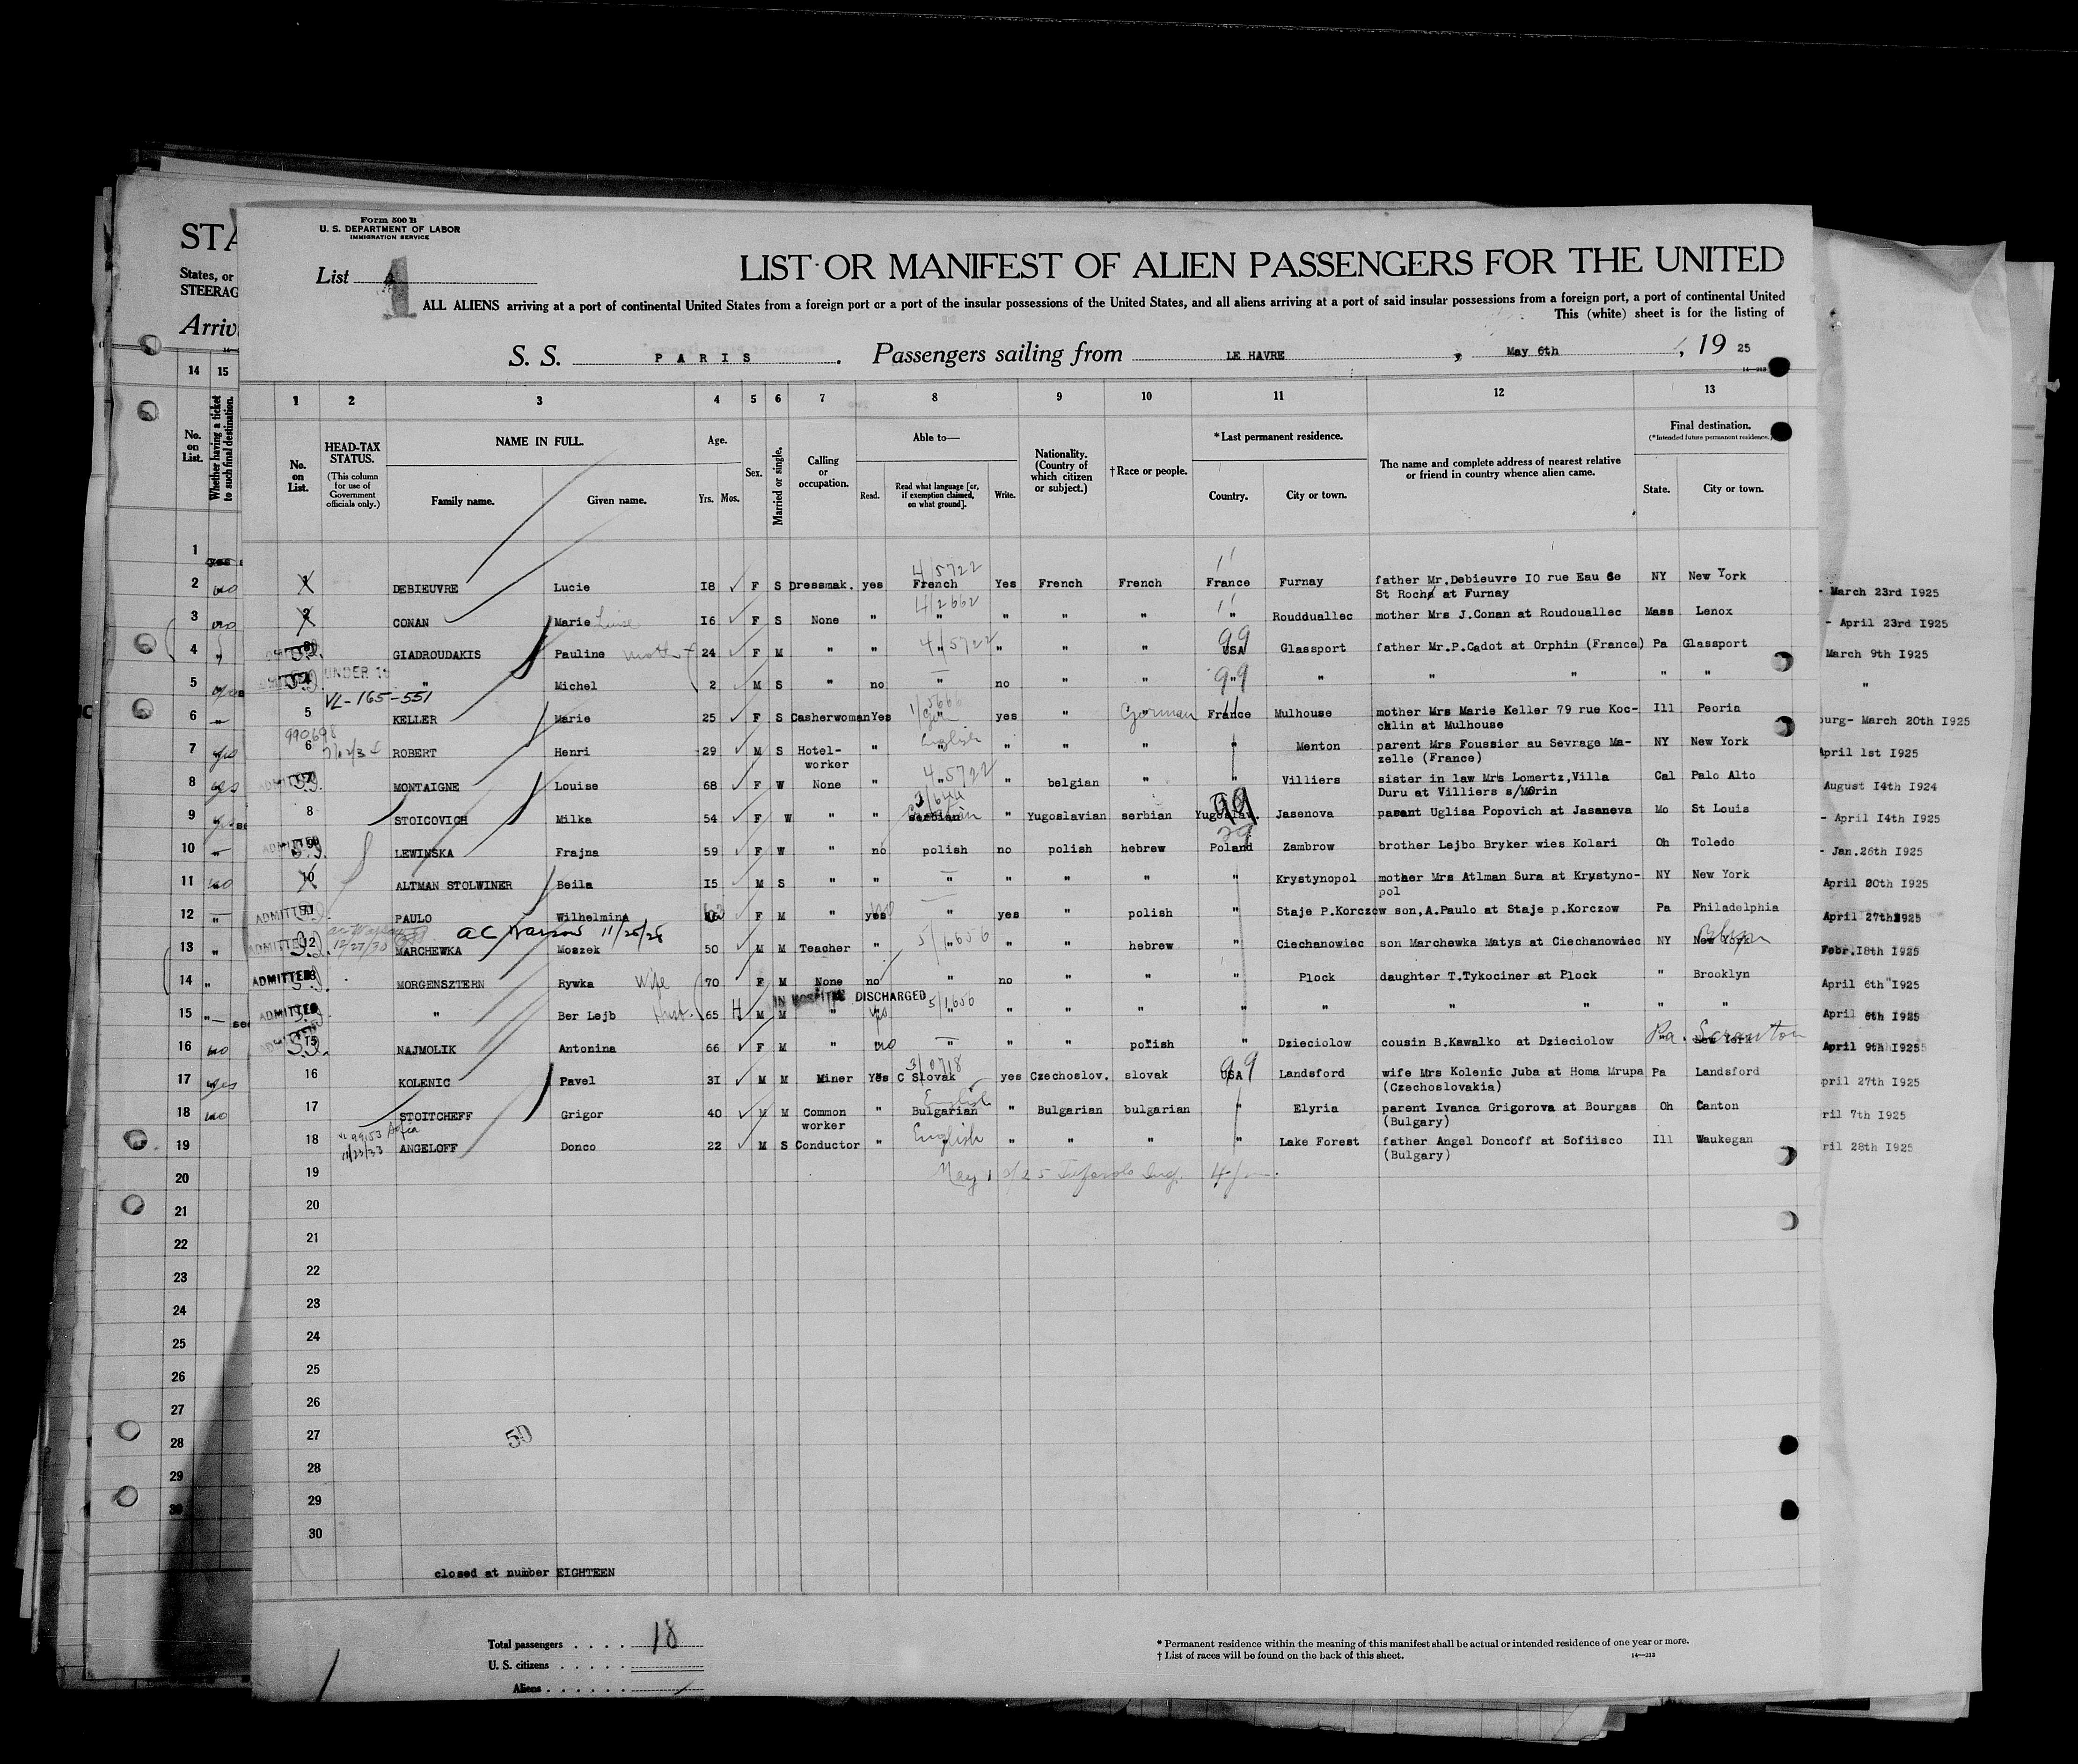 Form 500 B
U. S. DEPARTMENT OF LABOR
IMMIGRATION SERVICE
STA
List
LIST OR MANIFEST OF ALIEN PASSENGERS FOR THE UNITED
States, or
STEERAG
ALL ALIENS arriving at a port of continental United States from a foreign port or a port of the insular possessions of the United States, and all aliens arriving at a port of said insular possessions from a foreign port, a port of continental United
This (white) sheet is for the listing of
Arriv
S. S. PARIS. Passengers sailing from LE HAVRE, May 6th, 19 25
14 15 1 2 3 4 5 6 7 8 9 10 11 12 13
No. on List. Whether having a ticket to such final destination.
No. on List. HEAD-TAX STATUS. (This column for use of Government officials only.) NAME IN FULL. Family name. Given name. Age. Yrs. Mos. Sex. Married or single. Calling or occupation. Able to— Read. Read what language [or, if exemption claimed, on what ground]. Write. Nationality. (Country of which citizen or subject.) †Race or people. *Last permanent residence. Country. City or town. The name and complete address of nearest relative or friend in country whence alien came. Final destination. (*Intended future permanent residence.) State. City or town.
1
4/5722
2 no 1 DEBIEUVRE Lucie 18 F S Dressmak. yes French Yes French French France Furnay father Mr.Debieuvre 10 rue Eau de NY New York - March 23rd 1925
St Roch at Furnay
4/2662
3 no 2 CONAN Marie 16 F S None " " " " " " Roudduallec mother Mrs J.Conan at Roudouallec Mass Lenox - April 23rd 1925
4 " 3 GIADROUDAKIS Pauline mother 24 F M " " 4/5722 " " " " 99 USA Glassport father Mr.P.Cadot at Orphin (France) Pa Glassport March 9th 1925
5 4 UNDER 16 " Michel 2 M S " no " no " " 99 " " " " " " "
VL-165-551
6 " 5 KELLER Marie 25 F S Casherwoman Yes yes " German France Mulhouse mother Mrs Marie Keller 79 rue Koc- Ill Peoria ourg- March 20th 1925
chlin at Mulhouse
990698
7 no 6 ROBERT Henri 29 M S Hotel- " English " " " " " Menton parent Mrs Foussier au Sevrage Ma- NY New York April 1st 1925
worker zelle (France)
4/5722
8 yes ADMITTED 7 MONTAIGNE Louise 68 F W None " " " belgian " " Villiers sister in law Mrs Lomertz,Villa Cal Palo Alto August 14th 1924
Duru at Villiers s/Morin
9 8 STOICOVICH Milka 54 F W " " serbian " Yugoslavian serbian Yugoslav. 99 Jasenova parent Uglisa Popovich at Jasaneva Mo St Louis - April 14th 1925
10 " ADMITTED 9 LEWINSKA Frajna 59 F W " no polish no polish hebrew Poland Zambrow brother Lejbo Bryker wies Kolari Oh Toledo - Jan.26th 1925
11 no 10 ALTMAN STOLWINER Beila 15 M S " " " " " " " Krystynopol mother Mrs Atlman Sura at Krystyno- NY New York April 20th 1925
pol
12 " ADMITTED 11 PAULO Wilhelmina F M " yes no " yes " polish " Staje P.Korczow son,A.Paulo at Staje p.Korczow Pa Philadelphia April 27th 1925
12/27/30 ac Warsaw 11/25/28
13 " ADMITTED 12 MARCHEWKA Moszek 50 M M Teacher " 5/1656 " " " hebrew " Ciechanowiec son Marchewka Matys at Ciechanowiec NY New York Bklyn Febr.18th 1925
14 " ADMITTED 13 MORGENSZTERN Rywka Wife 70 F M None no " no " " " Plock daughter T.Tykociner at Plock " Brooklyn April 6th 1925
IN HOSPITAL DISCHARGED 5/1656
15 " ADMITTED 14 " Ber Lejb Husb. 65 H M M " " " " " " " " " " " " April 6th 1925
16 no 15 NAJMOLIK Antonina 66 F M " no " " " polish " Dzieciolow cousin B.Kawalko at Dzieciolow Pa. New York Scranton April 9th 1925
17 yes 16 KOLENIC Pavel 31 M M Miner Yes C Slovak 3/0718 yes Czechoslov. slovak USA 99 Landsford wife Mrs Kolenic Juba at Homa Mrupa Pa Landsford pril 27th 1925
(Czechoslovakia)
18 no 17 STOITCHEFF Grigor 40 M M Common " English Bulgarian " Bulgarian bulgarian " Elyria parent Ivanca Grigorova at Bourgas Oh Canton ril 7th 1925
worker (Bulgary)
Sofia
12/23/33
19 18 ANGELOFF Donco 22 M S Conductor " English " " " " Lake Forest father Angel Doncoff at Sofiisco Ill Waukegan ril 28th 1925
(Bulgary)
20 19
21 20
21
22 22
23 23
24 24
25 25
26 26
27 27
50
28 28
29 29
30 30
closed at number EIGHTEEN
Total passengers . . . . 18
U. S. citizens . . . . .
Aliens . . . . . .
* Permanent residence within the meaning of this manifest shall be actual or intended residence of one year or more.
† List of races will be found on the back of this sheet.
14—213